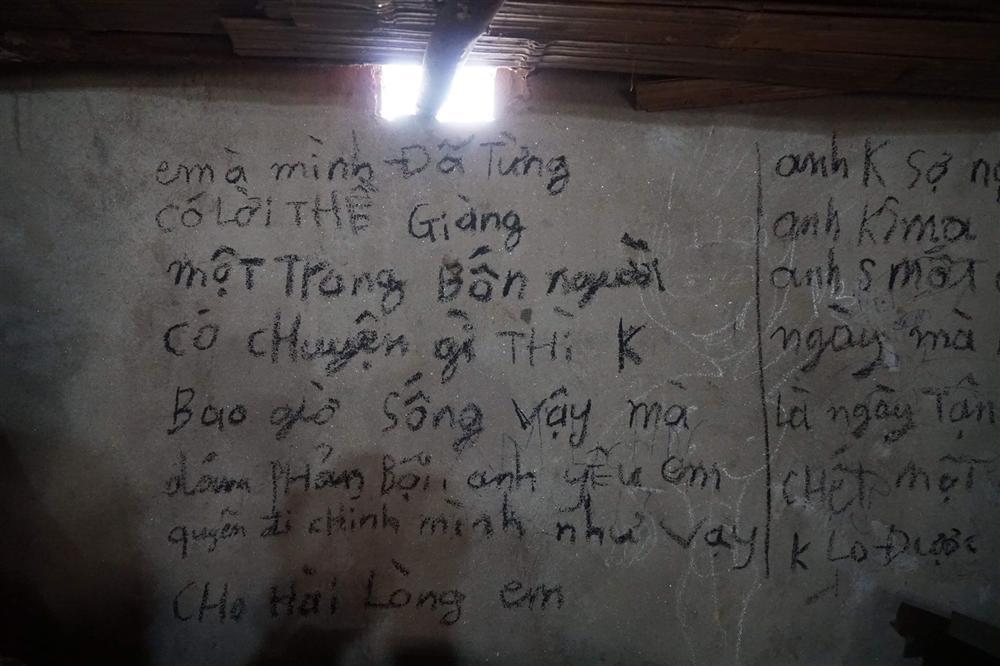 em à mình Đã Từng
có Lời THỀ Giàng
một Trong Bốn người
có cHuyện gì THì K
Bao giờ Sống Vậy mà
dám PHản Bội, anh yÊu em
quyên đi cHinh mình như vạy
CHo Hài Lòng em
anh K Sợ
anh K
anh S mất
ngày mà
là ngày Tận
CHết một
K Lo Được